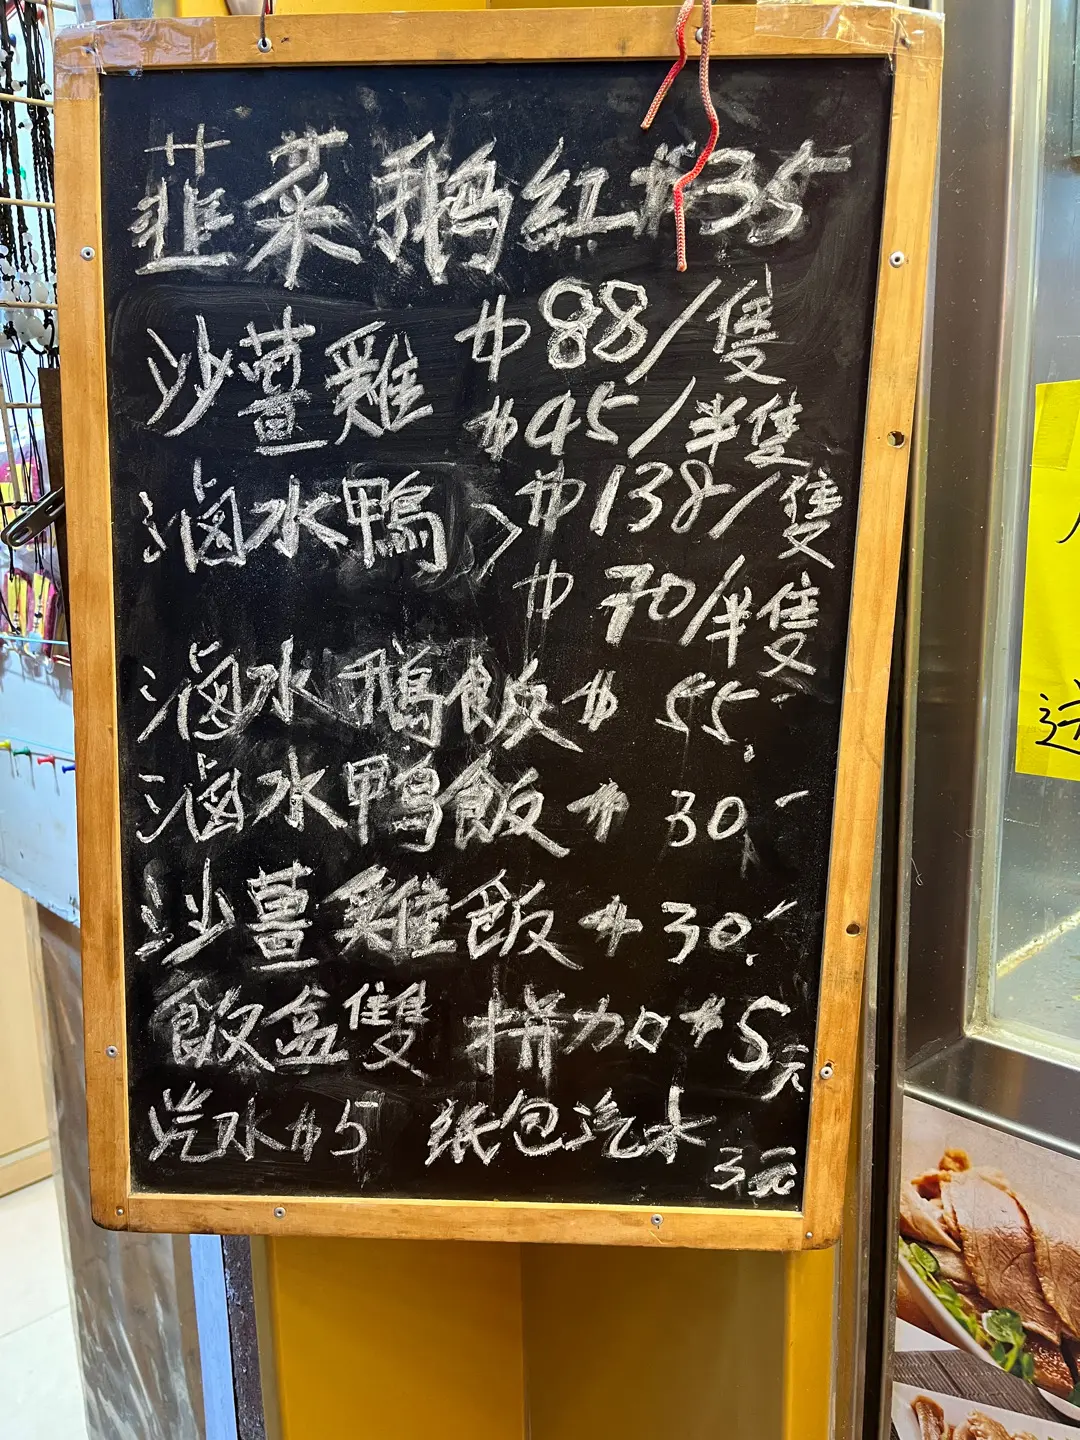 韮菜鵝紅$35
沙薑雞 $88/隻
$45/半隻
滷水鴨>$138/隻
$70/半隻
滷水鵝飯$55.-
滷水鴨飯$30.-
沙薑雞飯$30.-
飯盒雙拼加$5元
汽水$5 纸包汽水
3元
送